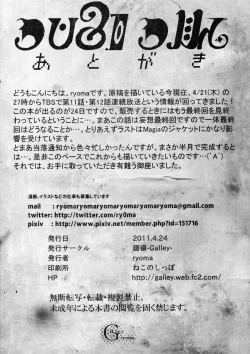 あとがき
どうもこんにちは、ryomaです。原稿を描いている今現在、4/21(木)の
27時からTBSで第11話・第12話連続放送という情報が回ってきました！
この本が出るのが24日ですので、販売するときにはもう最終回を見終
わっているということに…。まあこの話は妄想最終回ですので一体最終
回はどうなることか…。とりあえずラストはMagiaのジャケットにかなり影
響を受けています。
とまあ当落通知から色々忙しかったんですが、まさか半月で完成すると
は…。是非このペースでこれからも描いていきたいものです…(´A｀)
それでは、お手に取っていただき有難う御座いました。
漫画、イラストなどの仕事も募集しています
mail : ryomaryomaryomaryomaryomaryoma@gmail.com
twitter: http://twitter.com/ry0ma
pixiv : http://www.pixiv.net/member.php?id=151716
発行日 2011.4.24
発行サークル -Galley-
発行者 ryoma
印刷所 ねこのしっぽ
HP http://galley.web.fc2.com/
無断転写・転載・複製禁止。
未成年による本書の閲覧を固く禁じます。
Galley